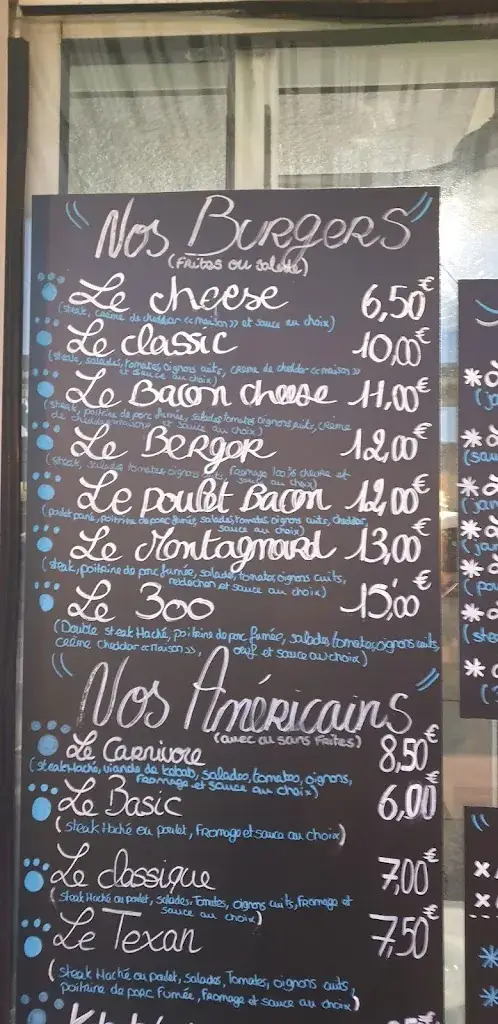 Nos Burgers
(Frites ou salade)
Le cheese 6,50€
(steak, crème de cheddar "maison" et sauce au choix)
Le classic 10,00€
(steak, salades, tomates, oignons cuits, crème de cheddar "maison"
et sauce au choix)
Le Bacon cheese 11,00€
(steak, poitrine de porc fumée, salades, tomates, oignons cuits, crème
de cheddar maison et sauce au choix)
Le Berger 12,00€
(steak, salades, tomates, oignons cuits, fromage 100% chèvre et
sauce au choix)
Le poulet Bacon 12,00€
(poulet pané, poitrine de porc fumée, salades, tomates, oignons cuits, cheddar,
sauce au choix)
Le Montagnard 13,00€
(steak, poitrine de porc fumée, salades, tomates, oignons cuits,
reblochon et sauce au choix)
Le 300 15,00€
(Double steak Haché, poitrine de porc fumée, salades, tomates, oignons cuits,
crème cheddar "maison", œuf et sauce au choix)
Nos Américains
(avec ou sans frites)
Le Carnivore 8,50€
(steak Haché, viande de kebab, salades, tomates, oignons,
fromage et sauce au choix)
Le Basic 6,00€
(steak Haché ou poulet, fromage et sauce au choix)
Le classique 7,00€
(steak Haché ou poulet, salades, tomates, oignons cuits, fromage et
sauce au choix)
Le Texan 7,50€
(steak Haché ou poulet, salades, Tomates, oignons cuits,
poitrine de porc Fumée, fromage et sauce au choix)